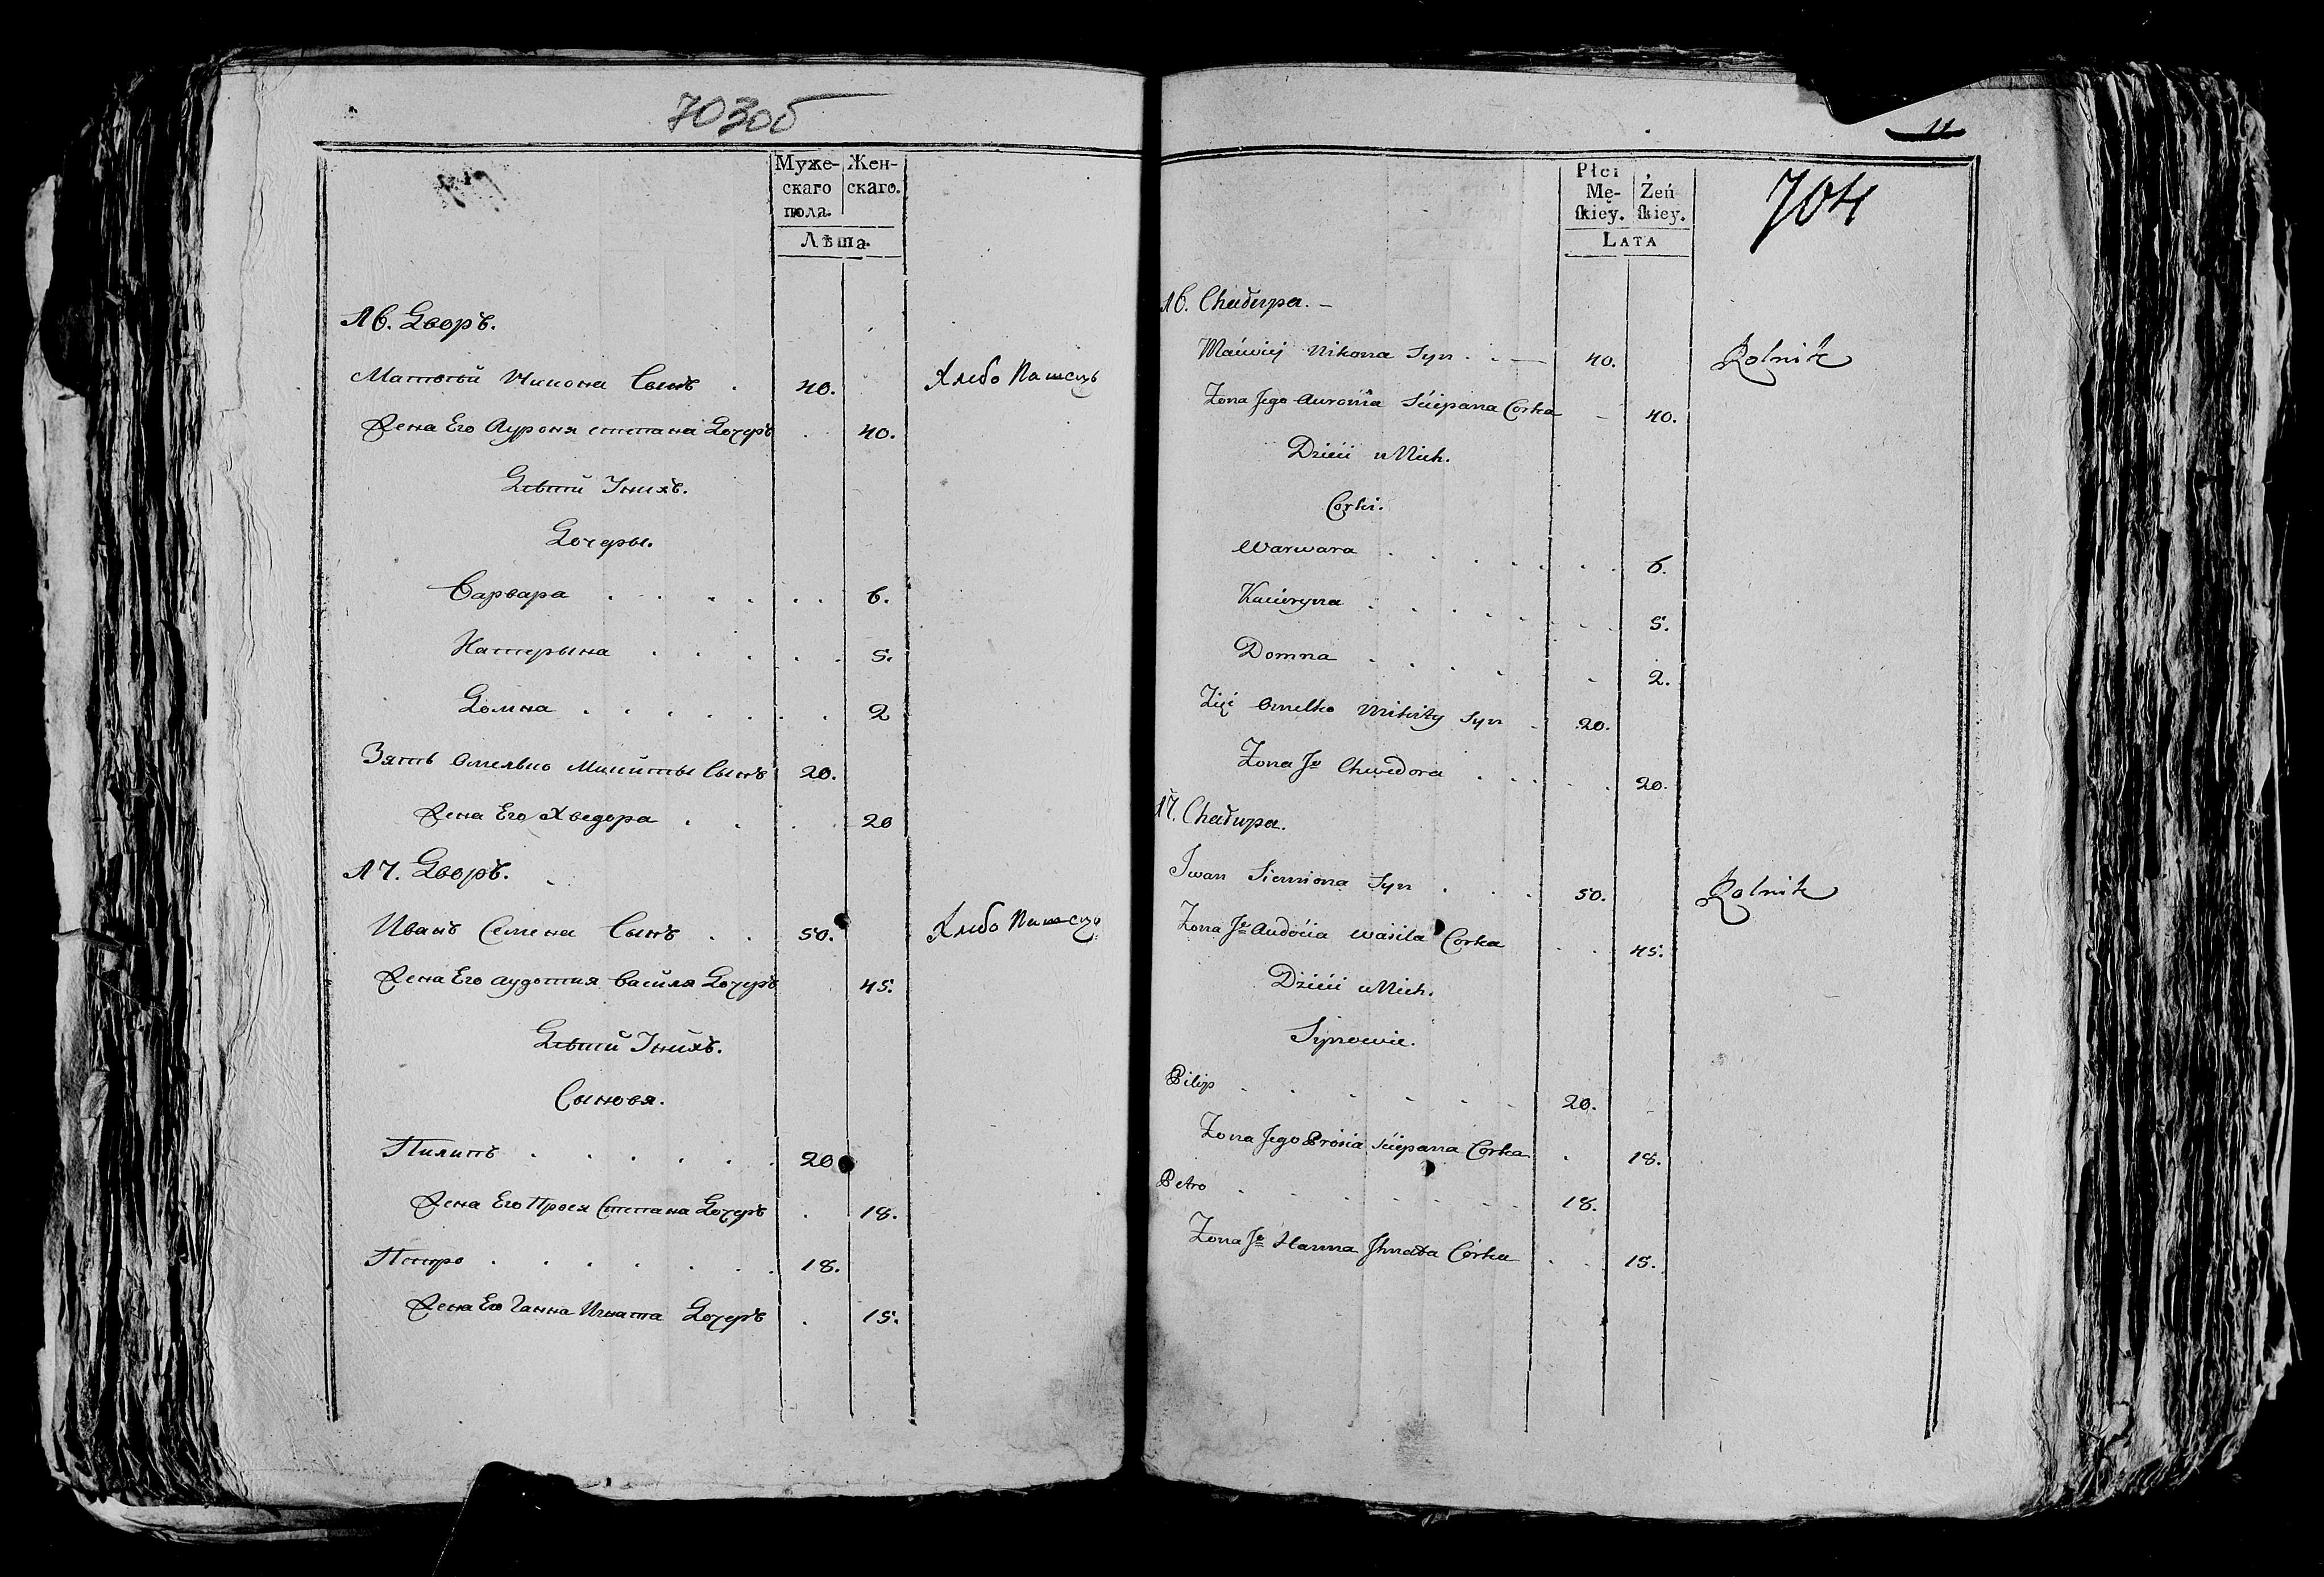 703об
Муже- Жен-
скаго скаго.
пола.
Лѣта.
16. Дворъ.
Матвѣй Никона Сынъ . 40. Хлѣбо Пашецъ
Жена Его Ауроня степана Дочеръ . . 40.
Дѣти Унихъ.
Дочеры.
Варвара . . . . . . 6.
Катерына . . . . . 5.
Домна . . . . . . . 2
Зять Омелько Микиты Сынъ 20.
Жена Его Хведора . . . 20
17. Дворъ.
Иванъ Семена Сынъ . . 50. Хлѣбо Пашецъ
Жена Его аудотия Василя Дочеръ 45.
Дѣти Унихъ.
Сыновя.
Пилипъ . . . . . . 20
Жена Его Прося Степана Дочеръ . 18.
Петро . . . . . . . 18.
Жена Его Ганна Игната Дочеръ . 15.
11
704
Płci
Mę- Żeń
ſkiey. ſkiey.
LATA
16. Chałupa. –
Maćwiey Nikona Syn . . — 40. Rolnik
Żona Jego Auronia Sciepana Corka – 40.
Dzieci u Nich.
Corki.
Warwara . . . . . . 6.
Kacieryna . . . . . . . 5.
Domna . . . . . 2.
Zięć Omelko Mikity Syn - 20.
Żona Je Chwedora . . . . . 20.
17. Chałupa.
Iwan Siemiona Syn . . . 50. Rolnik
Żona Je Audocia Wasila Corka . . 45.
Dzieci u Nich.
Synowie.
Pilip . . . . . . 20.
Żona Jego Prosia Sciepana Corka . 18.
Petro . . . . . . . 18.
Żona Je Hanna Ihnata Córka . . 15.